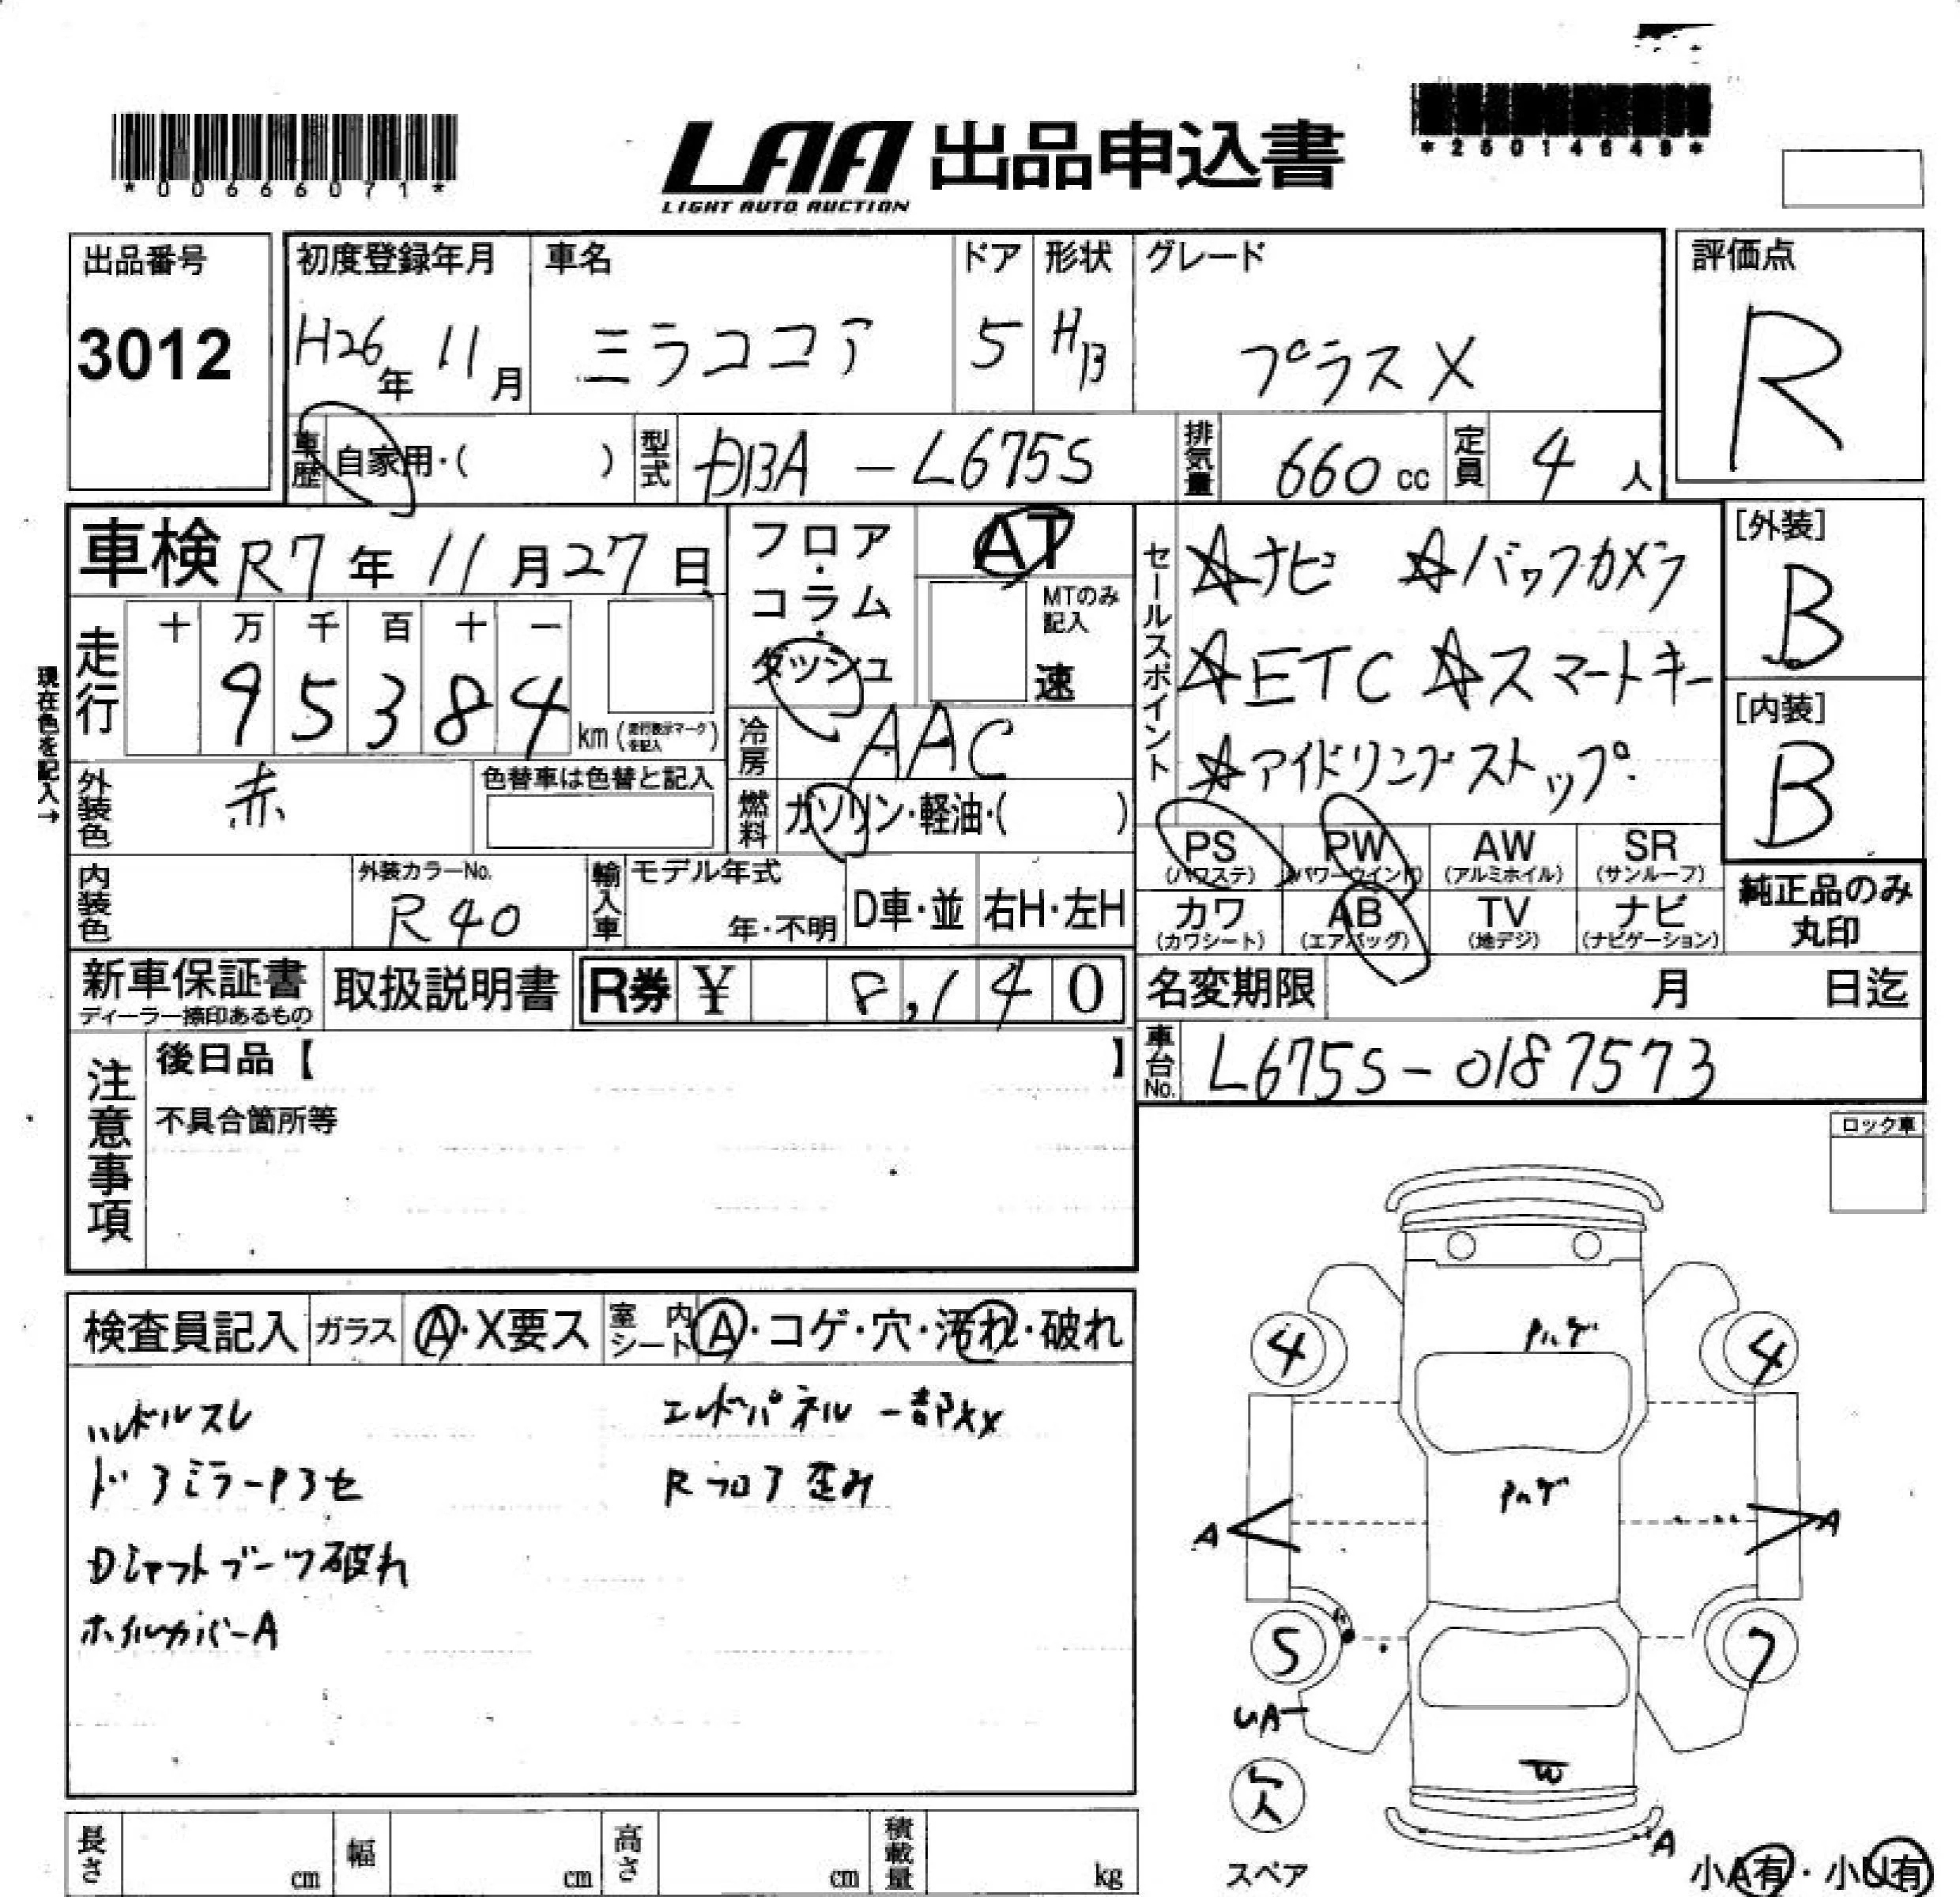 *00666071*
LAA 出品申込書
LIGHT AUTO AUCTION
*25014649*
出品番号
3012
初度登録年月
H26年 11月
車名
ミラココア
ドア
5
形状
HB
グレード
プラスX
評価点
R
車歴 自家用・( )
型式 DBA-L675S
排気量 660cc
定員 4人
車検 R7年 11月27日
フロア・コラム・ダッシュ
AT
MTのみ記入
速
セールスポイント
☆ナビ ☆バックカメラ
☆ETC ☆スマートキー
☆アイドリングストップ
[外装]
B
[内装]
B
現在色を記入→
走行
十 万 千 百 十 一
95384 km(走行表示マークを記入)
冷房 AAC
外装色 赤
色替車は色替と記入
燃料 ガソリン・軽油・( )
PS (パワステ)
PW (パワーウインド)
AW (アルミホイル)
SR (サンルーフ)
カワ (カワシート)
AB (エアバッグ)
TV (地デジ)
ナビ (ナビゲーション)
純正品のみ丸印
内装色
外装カラーNo.
R40
輸入車
モデル年式
年・不明
D車・並
右H・左H
新車保証書
ディーラー捺印あるもの
取扱説明書
R券 ¥ 8,140
名変期限 月 日迄
車台No. L675S-0187573
注意事項
後日品【 】
不具合箇所等
ロック車
検査員記入
ガラス A・X要ス
室内シート A・コゲ・穴・汚れ・破れ
ハンドルスレ
エンドパネル一部XX
ドアミラーPヨセ
Rフロア歪み
Dシャフトブーツ破れ
ホイルカバーA
4
4
Pハゲ
Pハゲ
A
A
5
7
UA
W
欠
スペア
A
小A有・小U有
長さ cm
幅 cm
高さ cm
積載量 kg